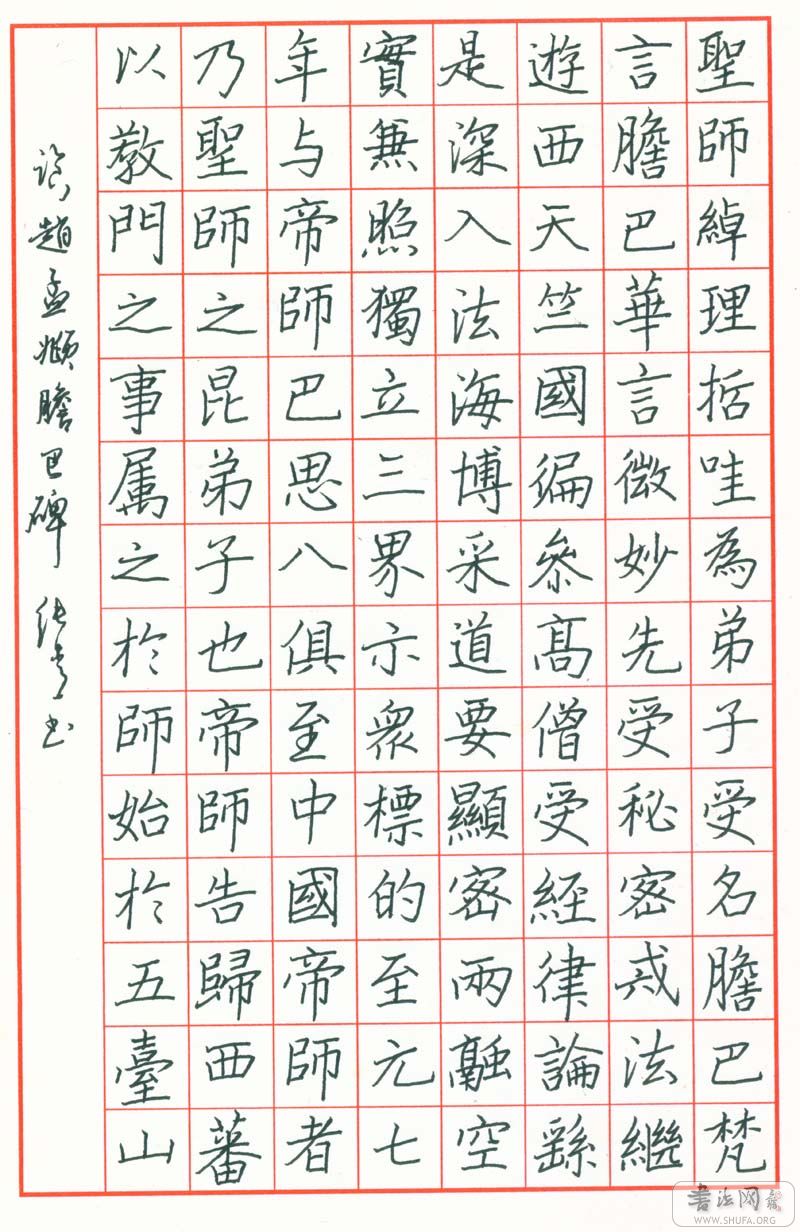 聖師綽理哲哇為弟子受名膽巴梵
言膽巴華言微妙先受秘密戒法繼
遊西天竺國徧叅髙僧受經律論繇
是深入法海博采道要顯密兩融空
實兼照獨立三界示眾標的至元七
年与帝師巴思八俱至中國帝師者
乃聖師之昆弟子也帝師告歸西蕃
以教門之事属之於師始於五臺山
临趙孟頫膽巴碑 书
書法网
WWW.SHUFA.ORG